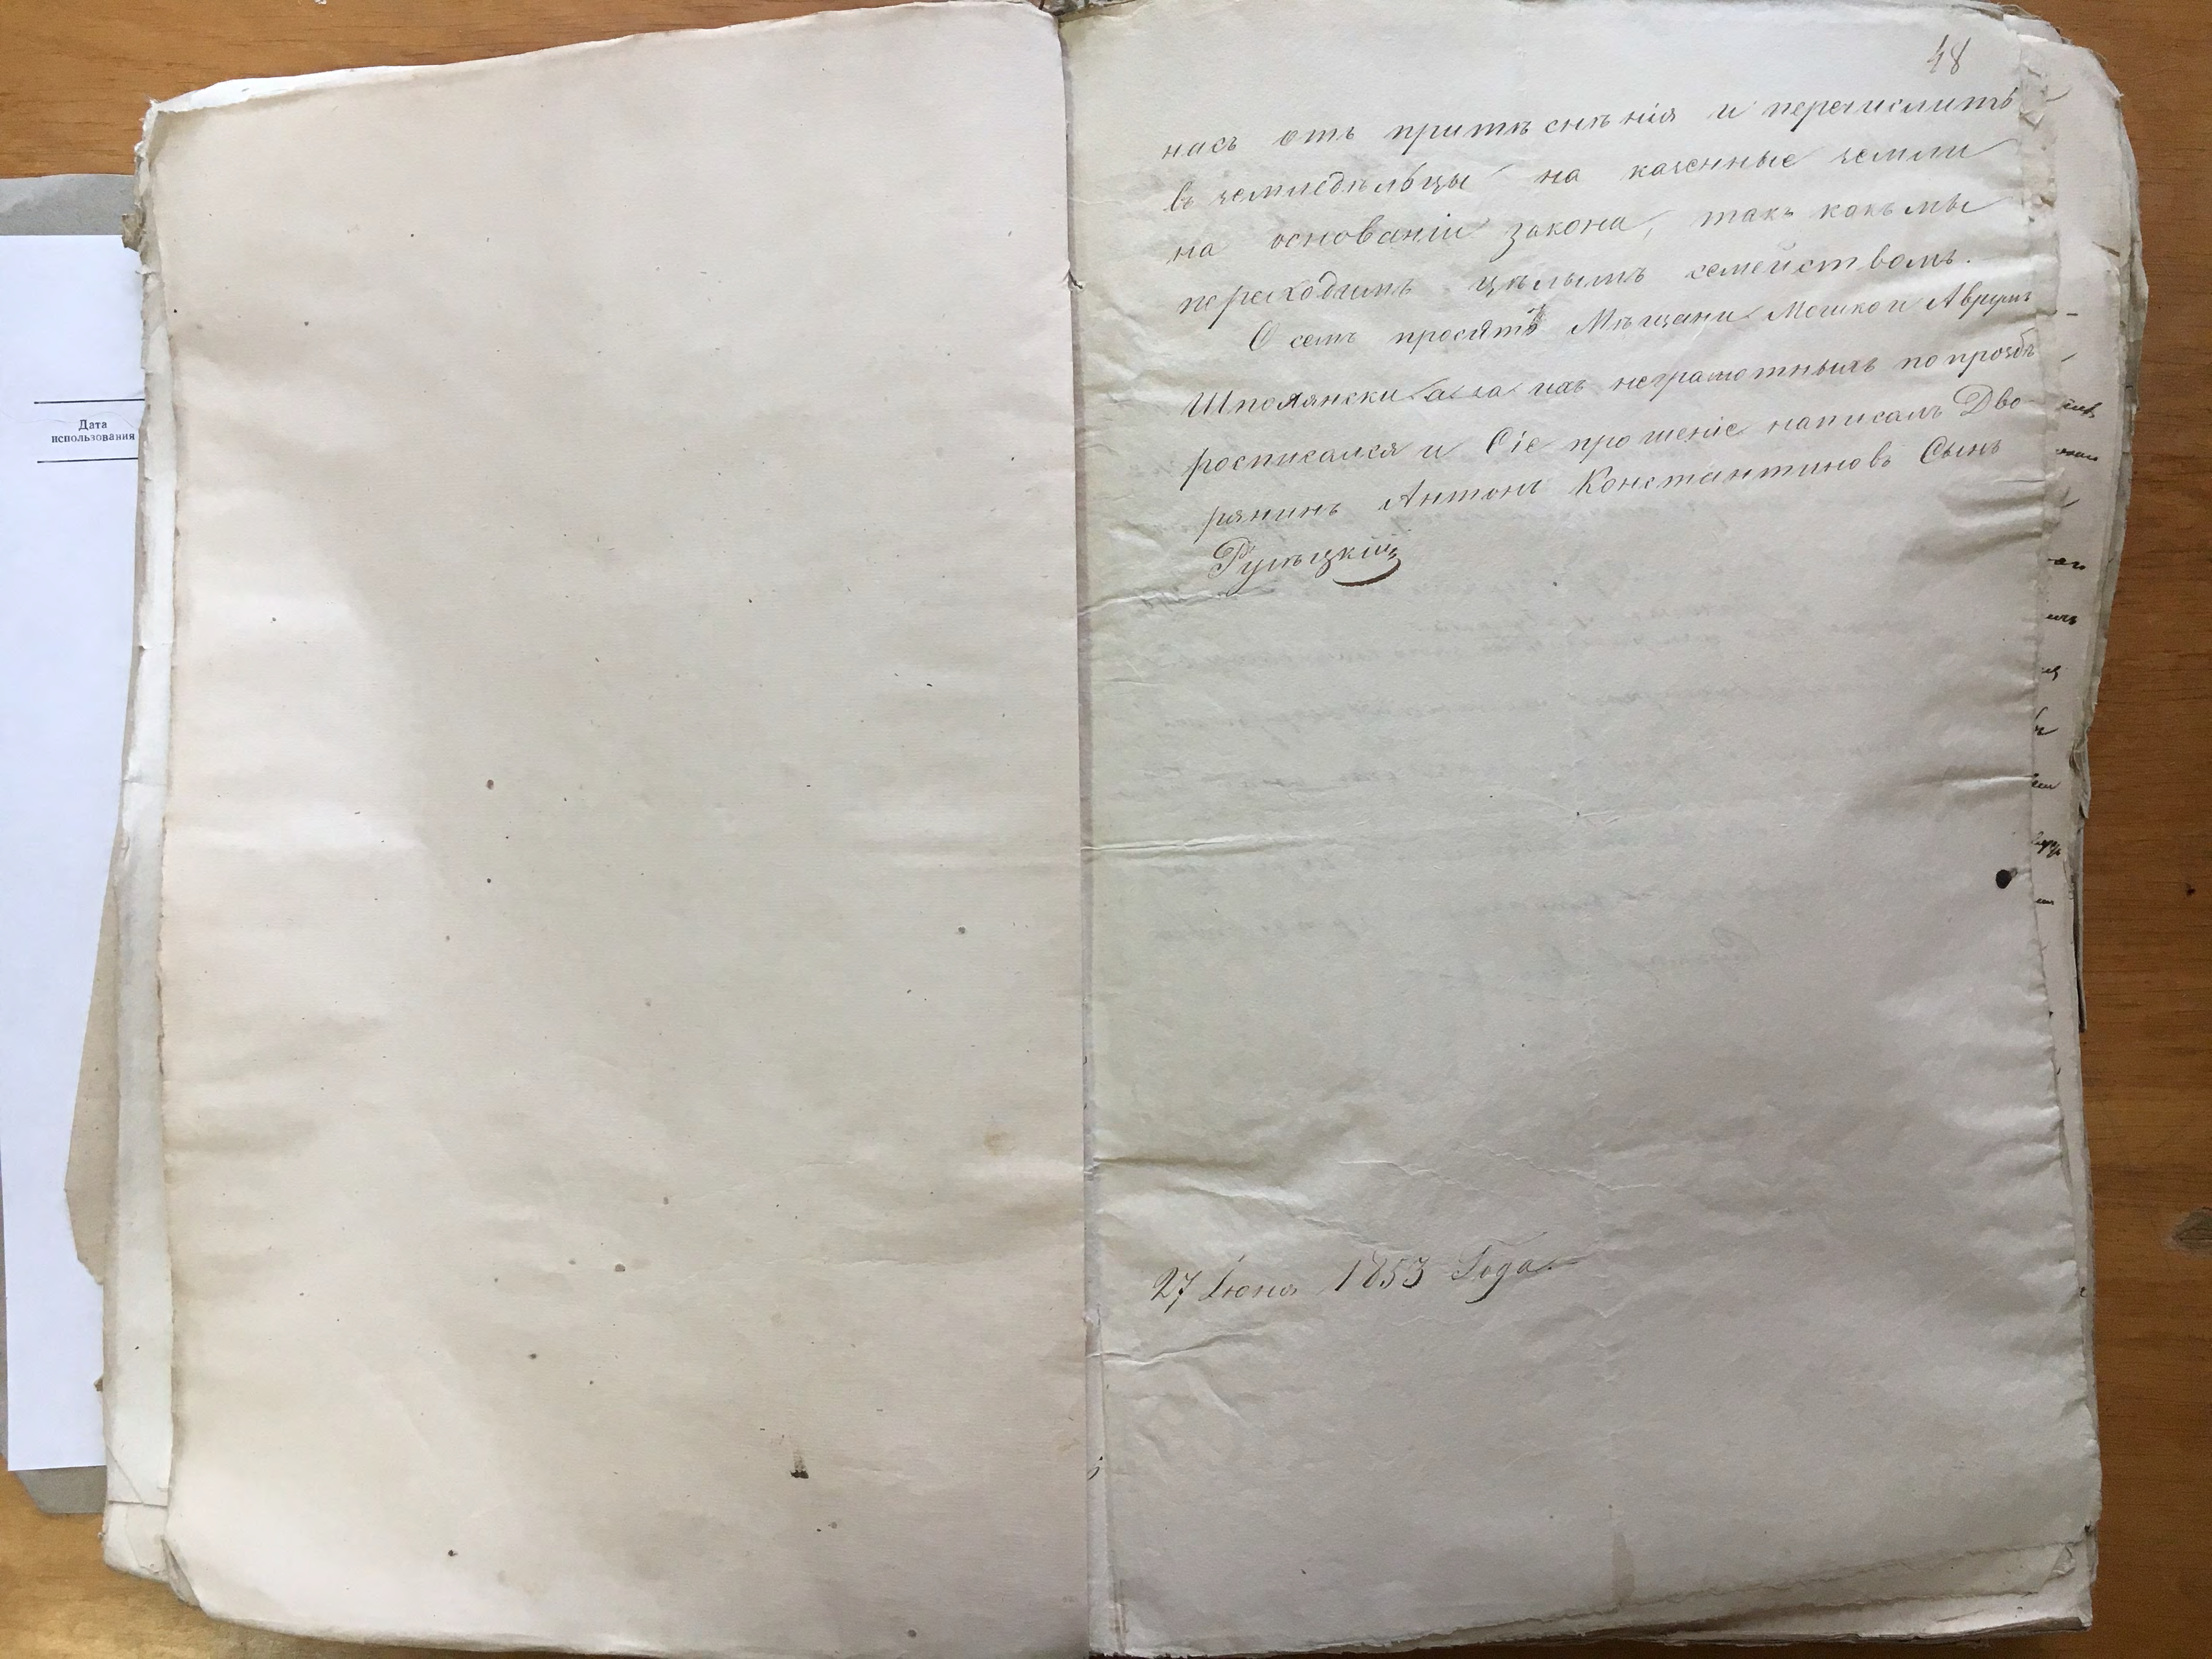 Дата
использования
48
насъ отъ притѣснѣнія и перечислитъ
въ земледѣльцы на казенные земли
на основаніи закона, такъ какъ мы
переходимъ цѣлымъ семействомъ.
О семъ просятъ Мѣщани Мошко и Аврумъ
Шполянски а за ихъ неграмотныхъ по прозбѣ
росписался и Сіе прошеніе написалъ Дво-
рянинъ Антонъ Константиновъ Сынъ
27 Іюня 1853 Года